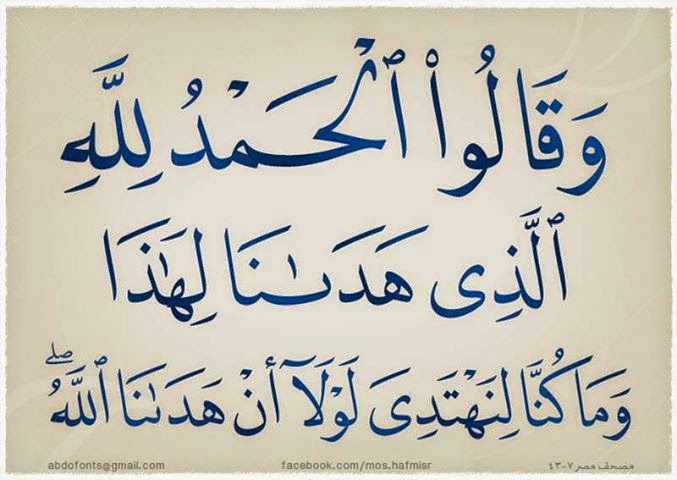 وَقَالُوا۟ ٱلْحَمْدُ لِلَّهِ
ٱلَّذِى هَدَىٰنَا لِهَٰذَا
وَمَا كُنَّا لِنَهْتَدِىَ لَوْلَآ أَنْ هَدَىٰنَا ٱللَّهُ ۖ
abdofonts@gmail.com facebook.com/mos.hafmisr مصحف مصر ٧-٤٣